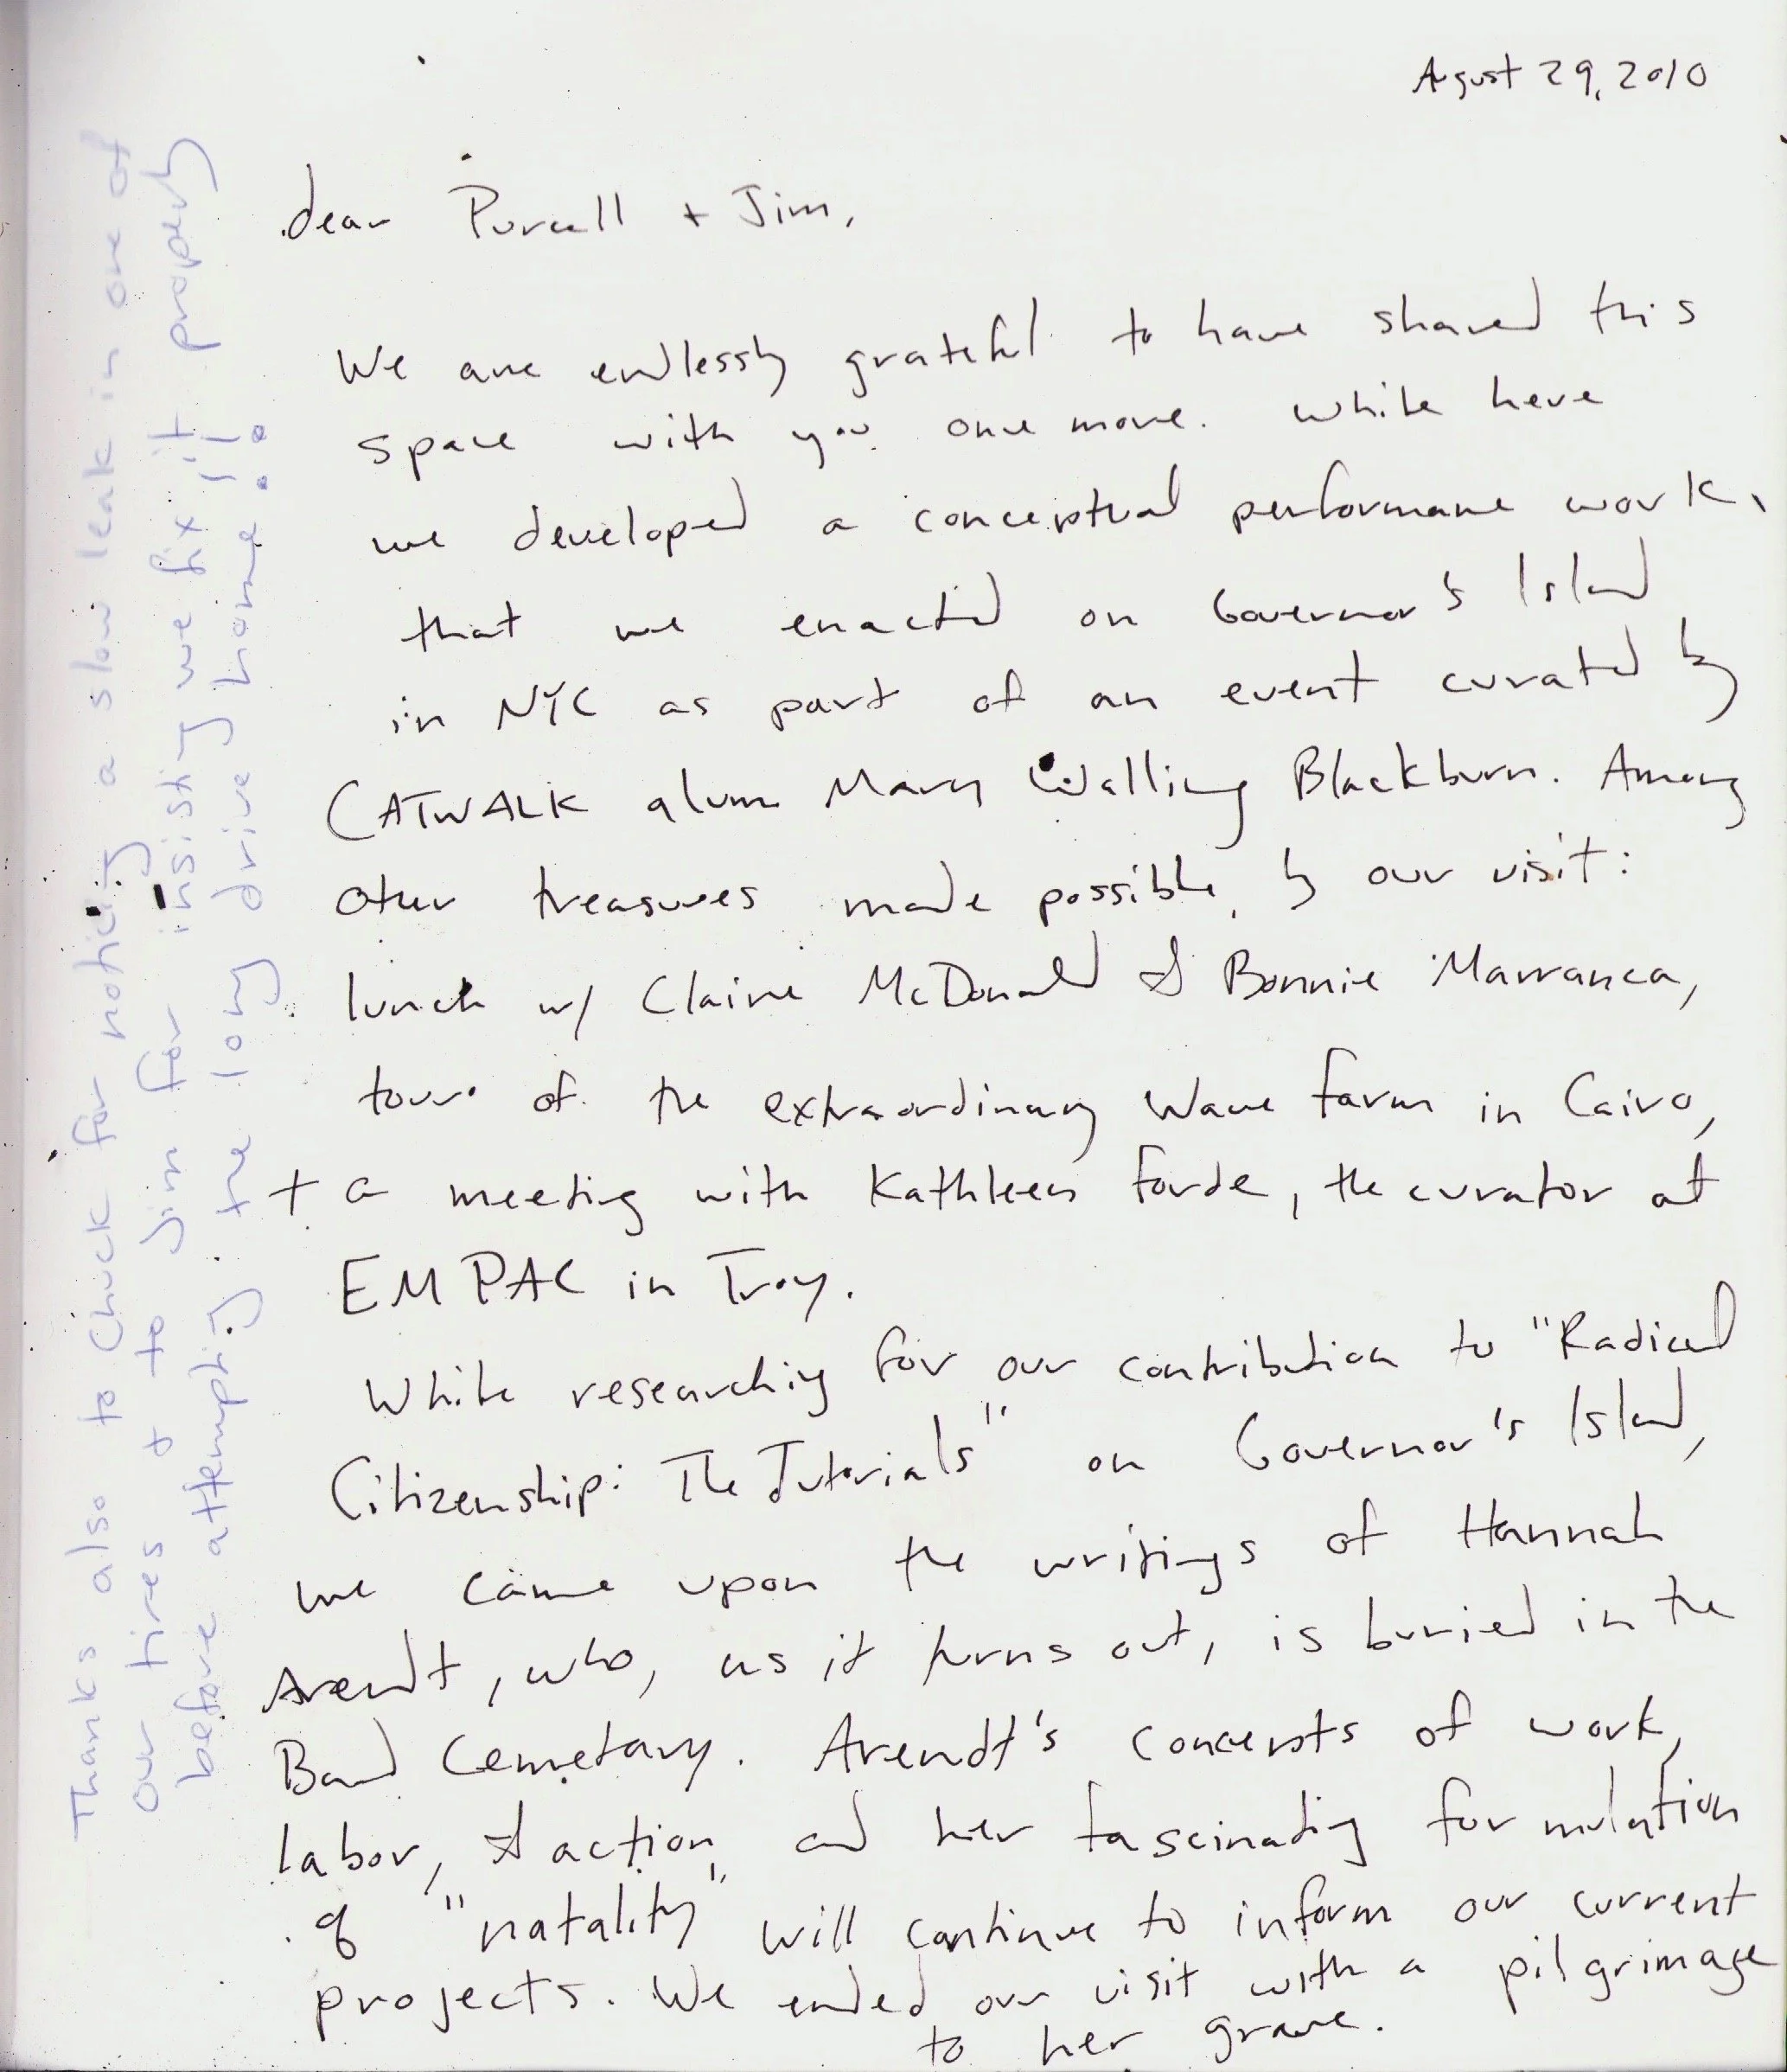 August 29, 2010
dear Purcell + Jim,
We are endlessly grateful to have shared this
space with you once more. While here
we developed a conceptual performance work,
that we enacted on Governor's Island
in NYC as part of an event curated by
CATWALK alum Mary Walling Blackburn. Among
other treasures made possible by our visit:
lunch w/ Claire McDonald & Bonnie Marranca,
tour of the extraordinary Wave Farm in Cairo,
+ a meeting with Kathleen Forde, the curator at
EMPAC in Troy.
While researching for our contribution to "Radical
Citizenship: The Tutorials" on Governor's Island,
we came upon the writings of Hannah
Arendt, who, as it turns out, is buried in the
Bard Cemetary. Arendt's concepts of work,
labor, & action, and her fascinating formulation
of "natality" will continue to inform our current
projects. We ended our visit with a pilgrimage
to her grave.
Thanks also to Chuck for noticing a slow leak in one of
our tires + to Jim for insisting we fix it properly
before attempting the long drive home!!